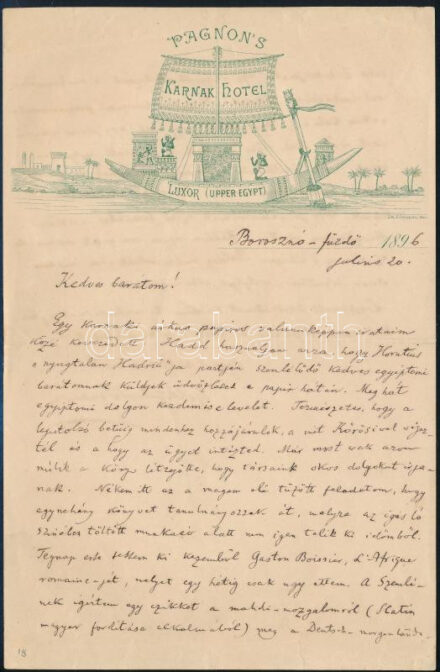 PAGNON'S
KARNAK HOTEL
LUXOR (UPPER EGYPT)
Borosznó-fürdő 1896
julius 20.
Kedves barátom!
Egy karnaki árkus papiros valamiképpen irataim
közé keveredett. Hadd használjam arra, hogy Horatius
„nyugtalan Hadria"-ja partján szemlélődő kedves egyptomi
barátomnak küldjek üdvözletet a papir hátán. Meg hát
egyptomi dolgon kezdem is e levelet. Természetes, hogy a
legutolsó betűig mindenhez hozzájárulok, a mit Kőrösivel végez-
tél és a hogy az ügyet intézted. Már most csak azon
múlik a Könyv létrejötte, hogy társaink okos dolgokat irja-
nak. Nékem itt az a magam elé tűzött feladatom, hogy
egynehány könyvet tanulmányozzak át, melyre az igásló
módra töltött munkaév alatt nem igen telik ki időmből.
Tegnap este tettem ki kezemből Gaston Boissier, L'Afrique
romaine-jét, melyet egy hétig csak ugy ettem. A Szemlé-
nek igértem egy czikket a mahdi-mozgalomról (Slatin
magyar forditása alkalmából) meg a Deutsch-morgenländi-
18
darabanth